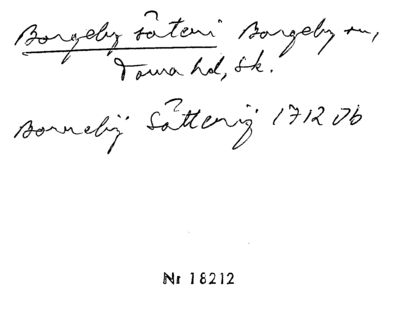 Borgeby säteri Borgeby sn,
Torna hd, Sk.
Borrebÿ Sätterÿ 1712 Jb
Nr 18212